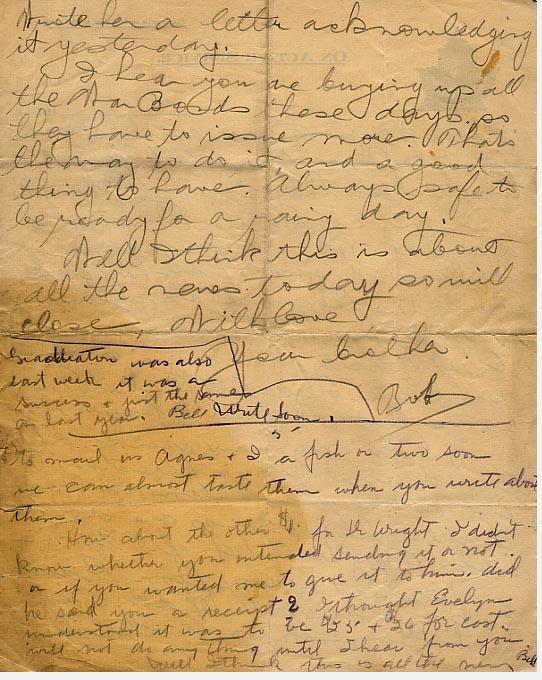 Write her a letter acknowledging
it yesterday.
I hear you are buying up all
the War Bonds these days, so
they have to issue more. Thats
the way to do it, and a good
thing to have. Always safe to
be ready for a rainy day.
Well I think this is about
all the news today so will
close, With love
Your brother.
Bob
Graduation was also
last week it was a
success + just the same
as last year. Bill Write Soon.
to mail us Agnes + I a fish or two soon
we can almost taste them when you write about
them.
How about the other $1. for Dr Wright I didn't
know whether you intended sending it or not.
or if you wanted me to give it to him. did
he send you a receipt I thought Evelyn
understood it was to be 25 + 26 for cost.
will not do anything until I hear from you.
Well I think this is all the news
Bill